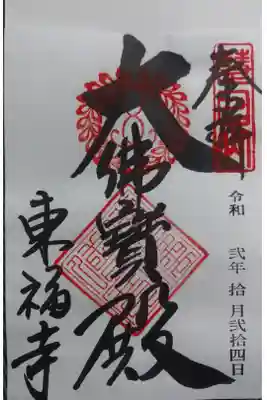 奉拝
令和 弐年 拾月 弐拾四日
大佛寳殿
東福寺